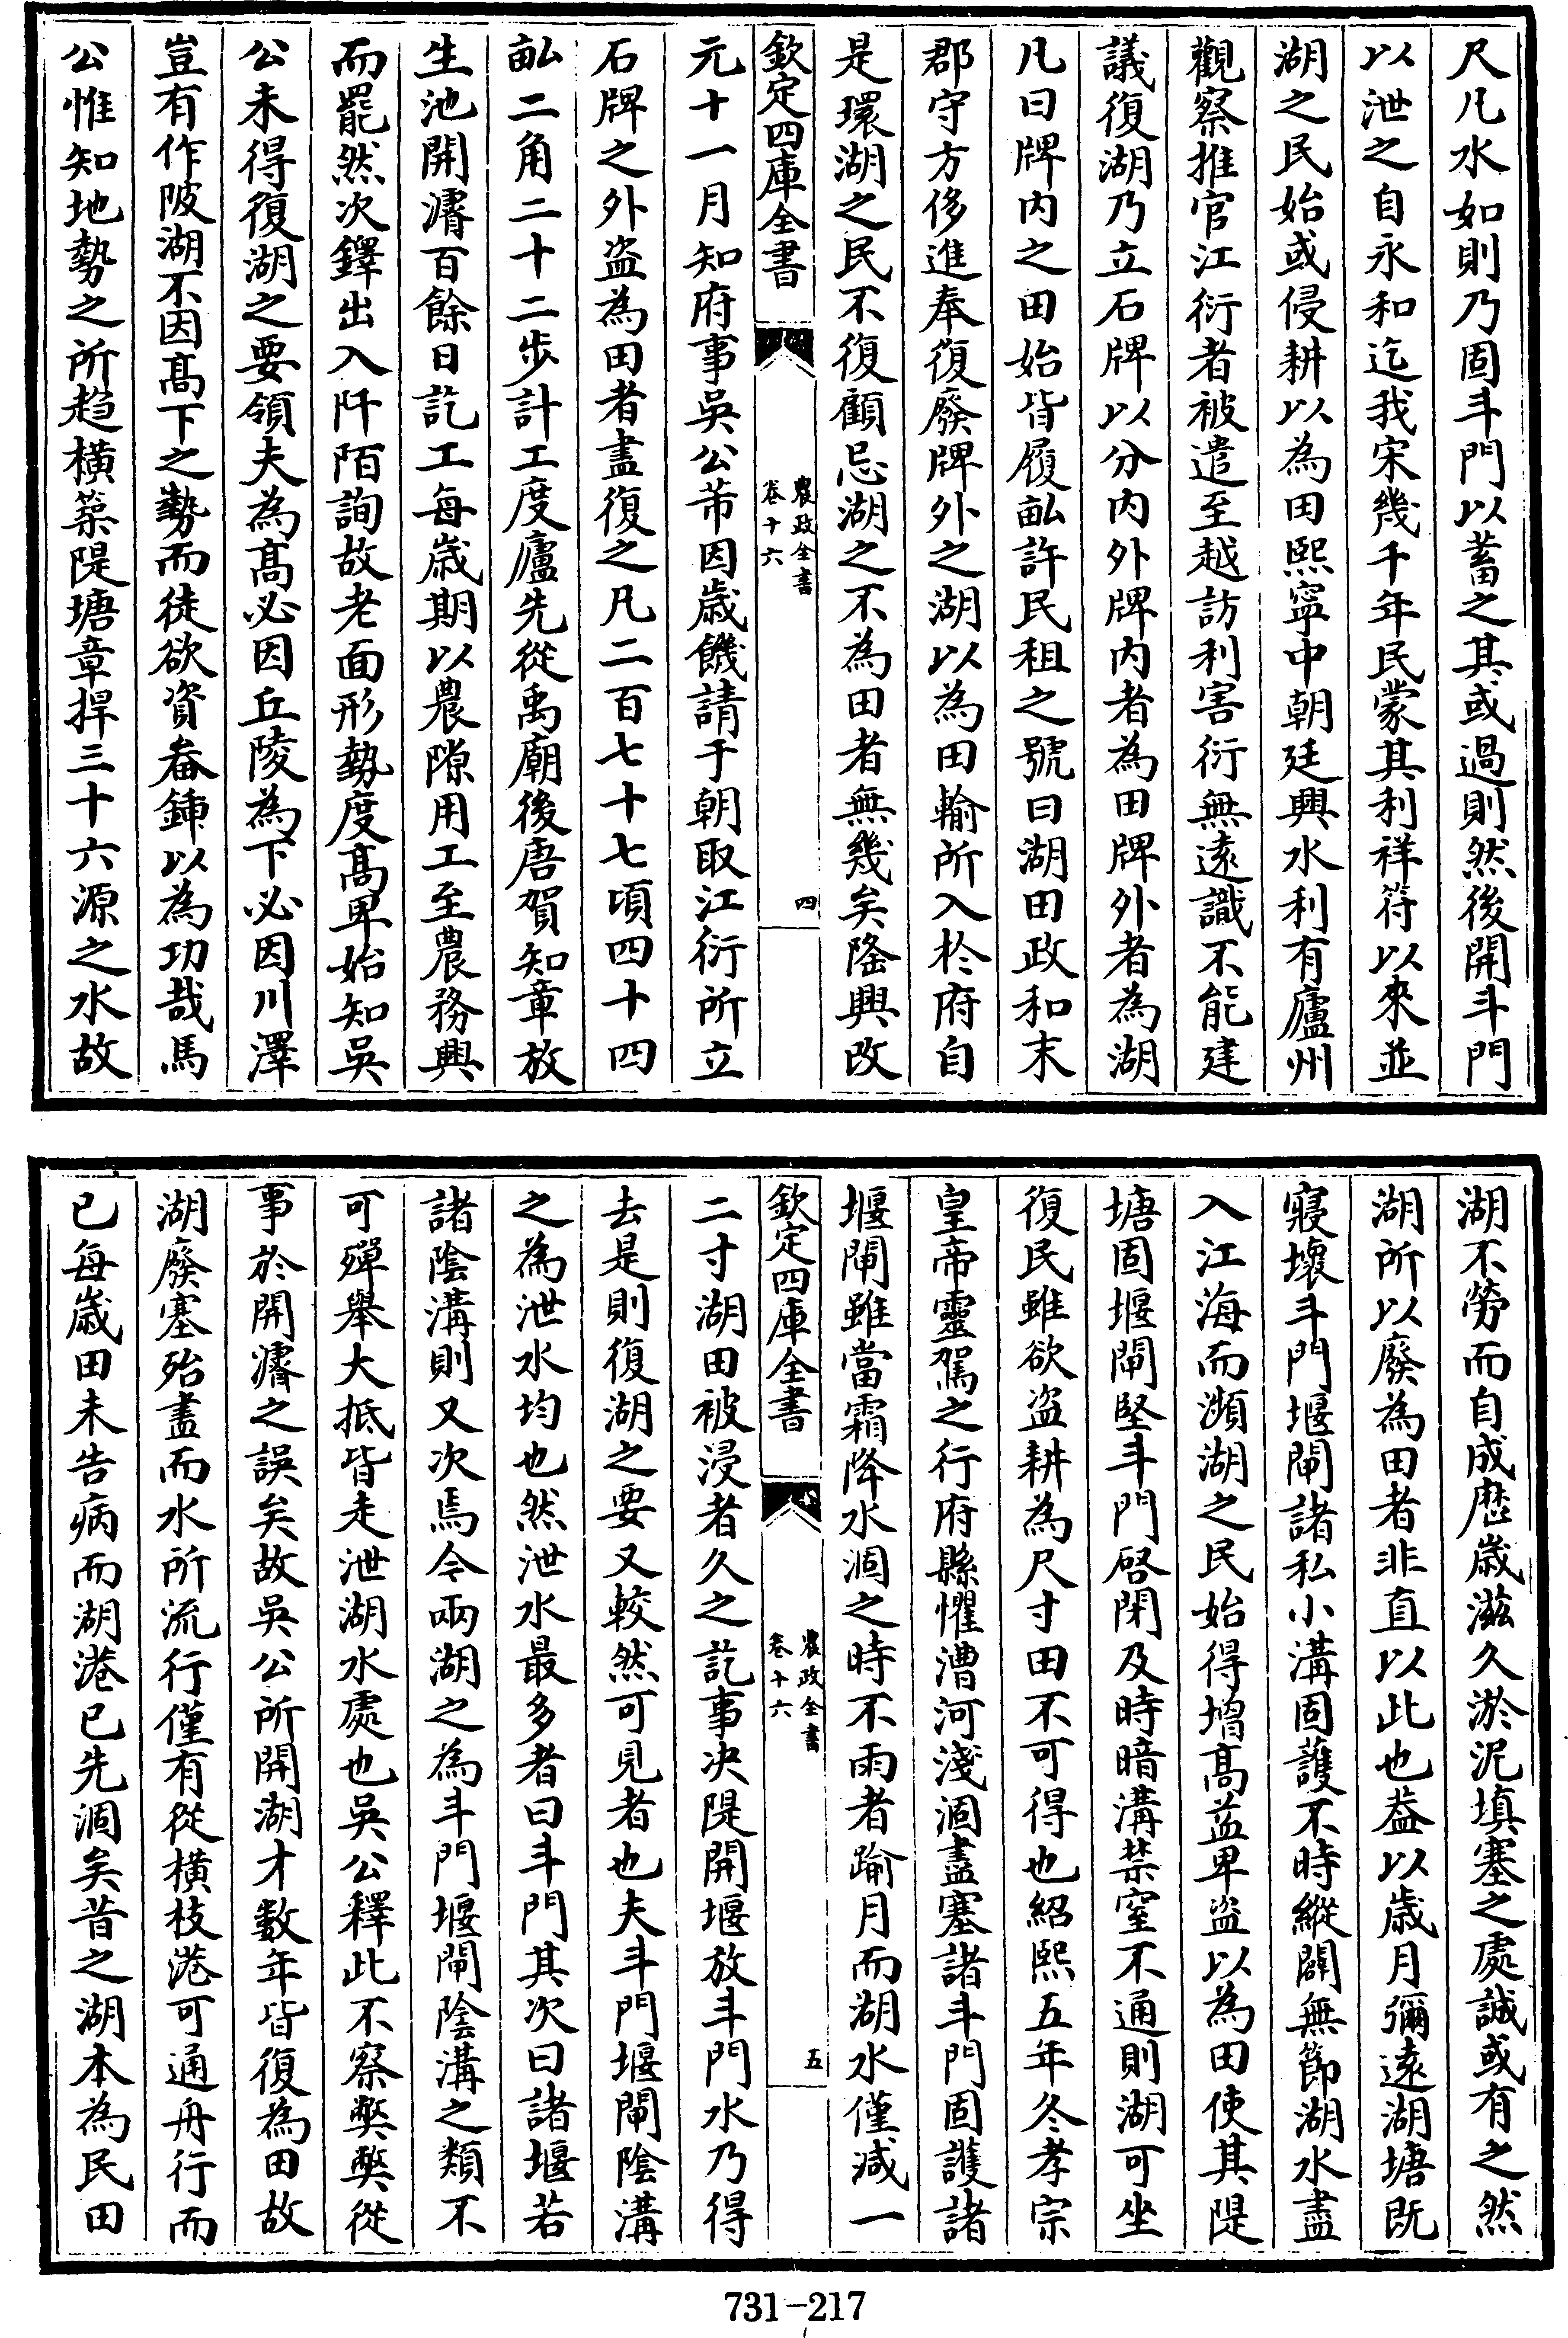 尺凡水如則乃固斗門以蓄之其或過則然後開斗門
以泄之自永和迄我宋幾千年民蒙其利祥符以來並
湖之民始或侵耕以為田熙寧中朝廷興水利有廬州
觀察推官江衍者被遣至越訪利害衍無遠識不能建
議復湖乃立石牌以分內外牌內者為田牌外者為湖
凡曰牌內之田始皆履畝許民租之號曰湖田政和末
郡守方侈進奉復廢牌外之湖以為田輸所入於府自
是環湖之民不復顧忌湖之不為田者無幾矣隆興改
欽定四庫全書
農政全書
卷十六
四
元十一月知府事吳公芾因歲饑請于朝取江衍所立
石牌之外盜為田者盡復之凡二百七十七頃四十四
畝二角二十二步計工度廬先從禹廟後唐賀知章放
生池開濬百餘日訖工每歲期以農隙用工至農務興
而罷然次鐸出入阡陌詢故老面形勢度高卑始知吳
公未得復湖之要領夫為高必因丘陵為下必因川澤
豈有作陂湖不因高下之勢而徒欲資畚鍤以為功哉馬
公惟知地勢之所趨橫築隄塘章捍三十六源之水故
湖不勞而自成歷歲滋久淤泥填塞之處誠或有之然
湖所以廢為田者非直以此也蓋以歲月彌遠湖塘既
寖壞斗門堰閘諸私小溝固護不時縱闢無節湖水盡
入江海而瀕湖之民始得增高益卑盜以為田使其隄
塘固堰閘堅斗門啓閉及時暗溝禁窒不通則湖可坐
復民雖欲盜耕為尺寸田不可得也紹熙五年冬孝宗
皇帝靈駕之行府縣懼漕河淺涸盡塞諸斗門固護諸
堰閘雖當霜降水涸之時不雨者踰月而湖水僅減一
欽定四庫全書
農政全書
卷十六
五
二寸湖田被浸者久之訖事决隄開堰放斗門水乃得
去是則復湖之要又較然可見者也夫斗門堰閘陰溝
之為泄水均也然泄水最多者曰斗門其次曰諸堰若
諸陰溝則又次焉今兩湖之為斗門堰閘陰溝之類不
可殫舉大抵皆走泄湖水處也吳公釋此不察弊弊從
事於開濬之誤矣故吳公所開湖才數年皆復為田故
湖廢塞殆盡而水所流行僅有從橫枝港可通舟行而
已每歲田未告病而湖港已先涸矣昔之湖本為民田
731-217